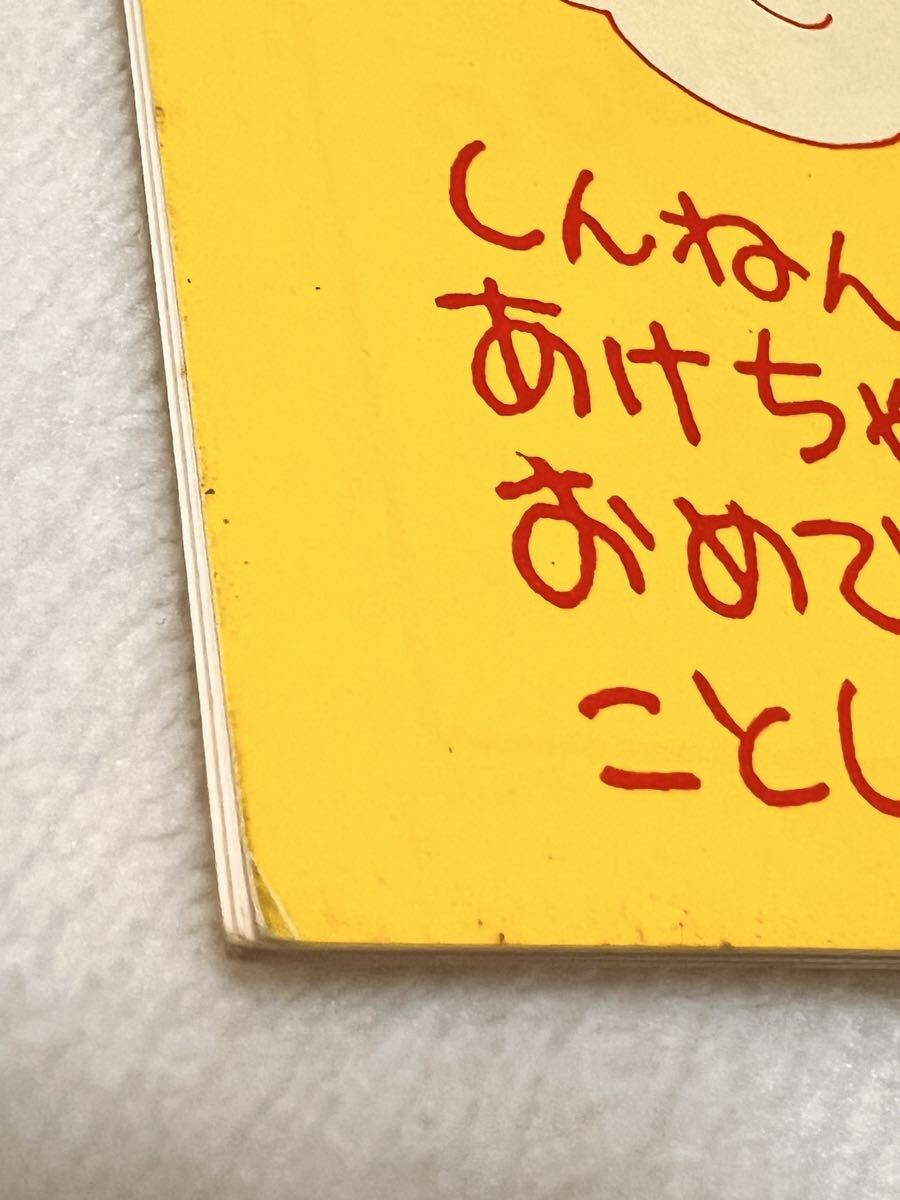 しんねん
あけちゃ
おめで
ことし